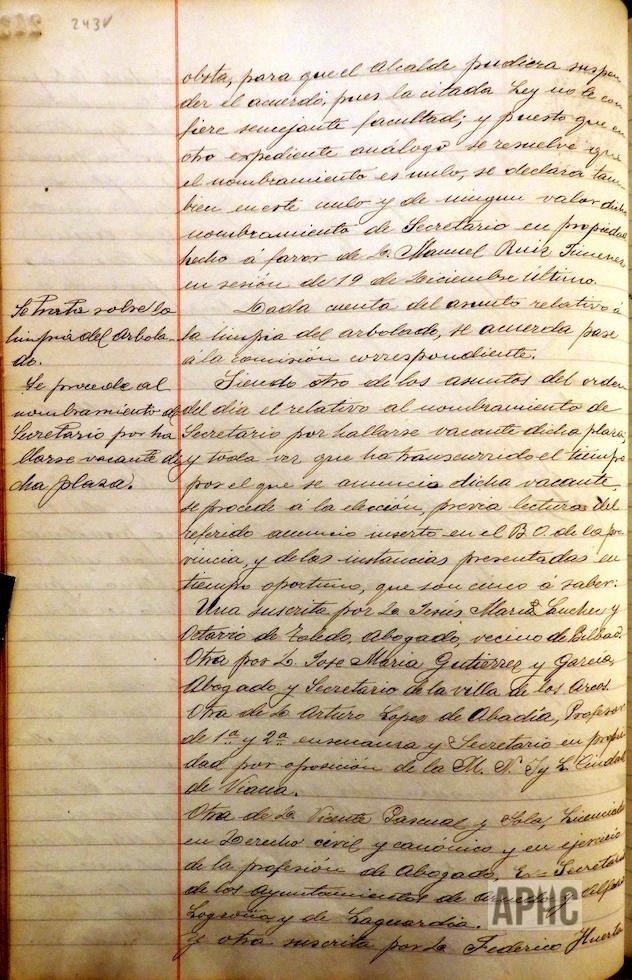 243v
obsta, para que el Alcalde pudiera suspen
der el acuerdo, pues la citada Ley no le con
fiere semejante facultad; y puesto que en
otro expediente análogo se resuelve que
el nombramiento es nulo, se declara tam
bien en este nulo y de ningun valor dicho
nombramiento de Secretario en propiedad
hecho á favor de D. Manuel Ruiz Jimenez
en sesión de 19 de Diciembre último.
Se trata sobre la
limpia del arbola-
do.
Dada cuenta del asunto relativo á
la limpia del arbolado, se acuerda pase
a la comisión correspondiente.
Se procede al
nombramiento de
Secretario por ha
llarse vacante di
cha plaza.
Siendo otro de los asuntos del orden
del día el relativo al nombramiento de
Secretario por hallarse vacante dicha plaza;
y toda vez que ha transcurrido el tiempo
por el que se anuncia dicha vacante
se procede á la elección, previa lectura del
referido anuncio inserto en el B.O. de la pro
vincia, y de las instancias presentadas en
tiempo oportuno, que son cinco á saber:
Una suscrita por D. Jesús María Sanchez y
Octavio de Toledo, Abogado, vecino de Bilbao.
Otra por D. Jose Maria Gutierrez y Garcia,
Abogado y Secretario de la villa de los Arcos.
Otra de D. Arturo Lopez de Abadía, Profesor
de 1ª y 2ª ensenansa y Secretario en propie
dad por oposición de la M. N. y L. Ciudad
de Viana.
Otra de D. Vicente Pascual y Sola, Licenciado
en Derecho civil y canónico y en ejercicio
de la profesión de Abogado, Ex-Secretario
de los Ayuntamientos de
Logroño y de Laguardia.
Y otra suscrita por D. Federico Huerta
APHC